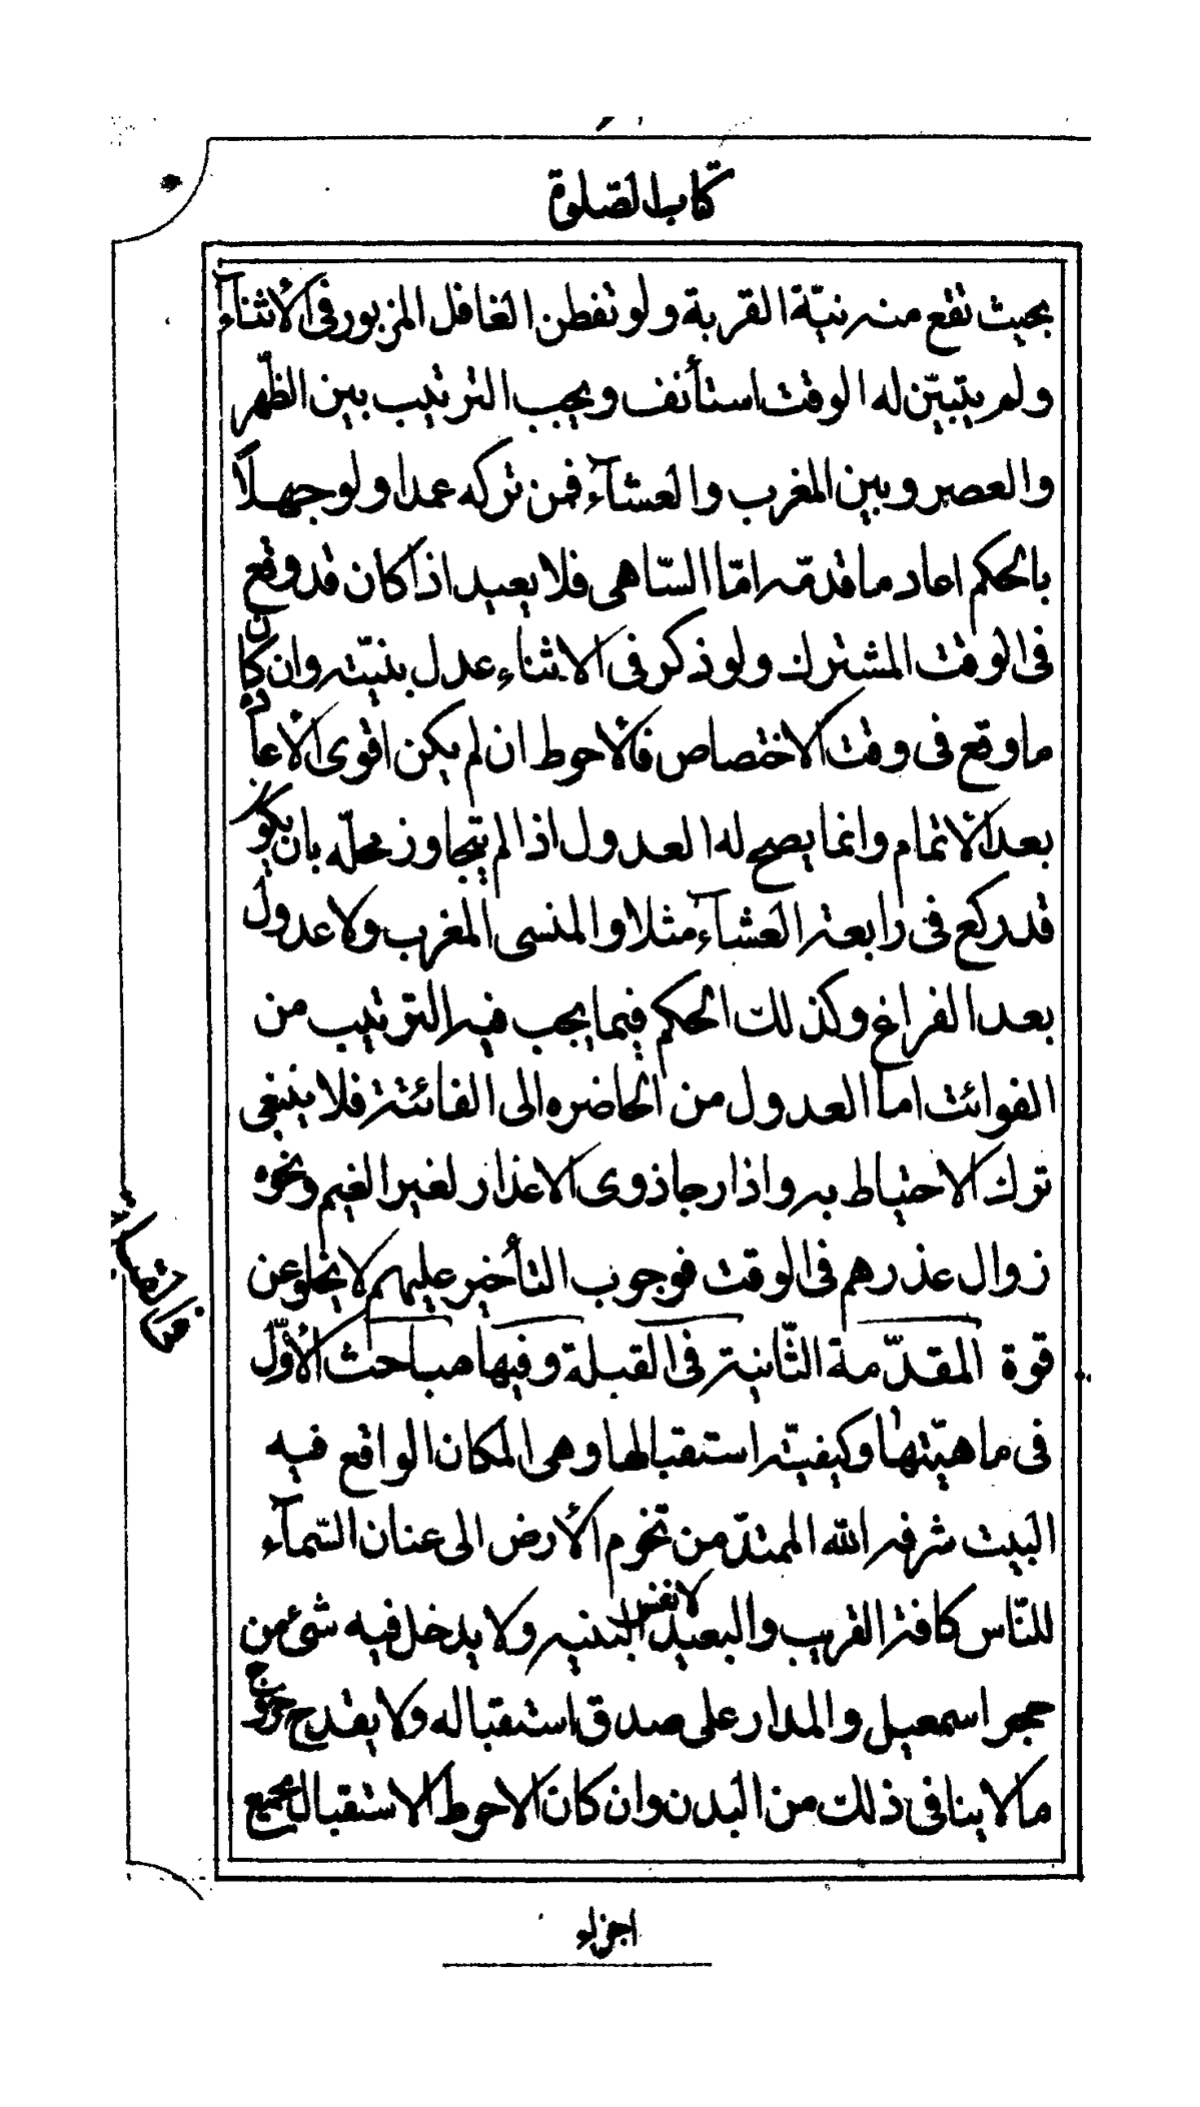 كتاب الصلوة
بحيث تقع منه نيّة القربة ولو تفطن الغافل المزبور فى الأثنآء
ولم يتبيّن له الوقت استأنف ويجب الترتيب بين الظّهر
والعصر وبين المغرب والعشآء فمن تركه عمدا ولو جهلًا
بالحكم اعاد ما قدمّه امّا السّاهى فلا يعيد اذا كان قد وقع
فى الوقت المشترك ولو ذكر فى الاثناء عدل بنيّته وان كان
ما وقع فى وقت الاختصاص فالأحوط ان لم يكن اقوى الأعادة
بعد الاتمام وانما يصح له العدول اذا لم يتجاوز محلّه بان يكون
قد ركع فى رابعة العشآء مثلا والمنسى المغرب ولا عدول
بعد الفراغ وكذلك الحكم فيما يجب فيه الترتيب من
الفوائت اما العدول من الحاضره الى الفائتة فلا ينبغى
ترك الاحتياط به واذا رجا ذوى الاعذار لغير الغيم ونحوه
زوال عذرهم فى الوقت فوجوب التأخير عليهم لا يخلو عن
قوة المقدّمة الثّانية فى القبلة وفيها مباحث الأوّل
فى ماهيّتها وكيفيّة استقبالها وهى المكان الواقع فيه
البيت شرفه الله الممتدّ من تخوم الأرض الى عنان السّمآء
للنّاس كافة القريب والبعيد لا نفس البنيه ولا يدخل فيه شئ من
حجر اسمعيل والمدار على صدق استقباله ولا يقدح خروج
ما لا ينافى ذلك من البدن وان كان الاحوط الاستقبال بجميع
اجزاء